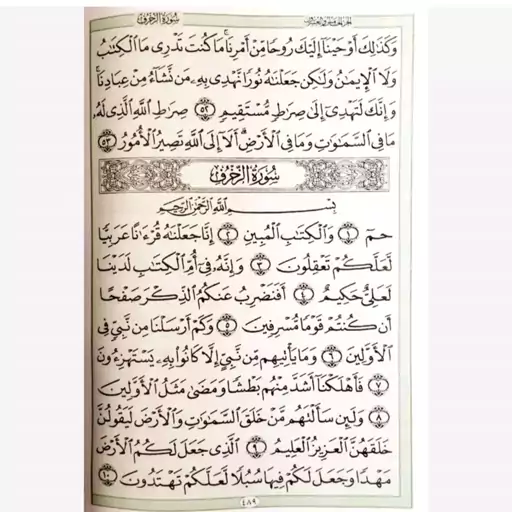 سُورَةُ الزُّخْرُفِ الجزء الخامس والعشرون
وَكَذَٰلِكَ أَوْحَيْنَا إِلَيْكَ رُوحًا مِّنْ أَمْرِنَا ۚ مَا كُنتَ تَدْرِى مَا الْكِتَٰبُ
وَلَا الْإِيمَٰنُ وَلَٰكِن جَعَلْنَٰهُ نُورًا نَّهْدِى بِهِۦ مَن نَّشَآءُ مِنْ عِبَادِنَا ۚ
وَإِنَّكَ لَتَهْدِىٓ إِلَىٰ صِرَٰطٍ مُّسْتَقِيمٍ ٥٢ صِرَٰطِ اللَّهِ الَّذِى لَهُۥ
مَا فِى السَّمَٰوَٰتِ وَمَا فِى الْأَرْضِ ۗ أَلَآ إِلَى اللَّهِ تَصِيرُ الْأُمُورُ ٥٣
سُورَةُ الزُّخْرُفِ
بِسْمِ اللَّهِ الرَّحْمَٰنِ الرَّحِيمِ
حمٓ ١ وَالْكِتَٰبِ الْمُبِينِ ٢ إِنَّا جَعَلْنَٰهُ قُرْءَٰنًا عَرَبِيًّا
لَّعَلَّكُمْ تَعْقِلُونَ ٣ وَإِنَّهُۥ فِىٓ أُمِّ الْكِتَٰبِ لَدَيْنَا
لَعَلِىٌّ حَكِيمٌ ٤ أَفَنَضْرِبُ عَنكُمُ الذِّكْرَ صَفْحًا
أَن كُنتُمْ قَوْمًا مُّسْرِفِينَ ٥ وَكَمْ أَرْسَلْنَا مِن نَّبِىٍّ فِى
الْأَوَّلِينَ ٦ وَمَا يَأْتِيهِم مِّن نَّبِىٍّ إِلَّا كَانُوا۟ بِهِۦ يَسْتَهْزِءُونَ
٧ فَأَهْلَكْنَآ أَشَدَّ مِنْهُم بَطْشًا وَمَضَىٰ مَثَلُ الْأَوَّلِينَ
٨ وَلَئِن سَأَلْتَهُم مَّنْ خَلَقَ السَّمَٰوَٰتِ وَالْأَرْضَ لَيَقُولُنَّ
خَلَقَهُنَّ الْعَزِيزُ الْعَلِيمُ ٩ الَّذِى جَعَلَ لَكُمُ الْأَرْضَ
مَهْدًا وَجَعَلَ لَكُمْ فِيهَا سُبُلًا لَّعَلَّكُمْ تَهْتَدُونَ ١٠
٤٨٩